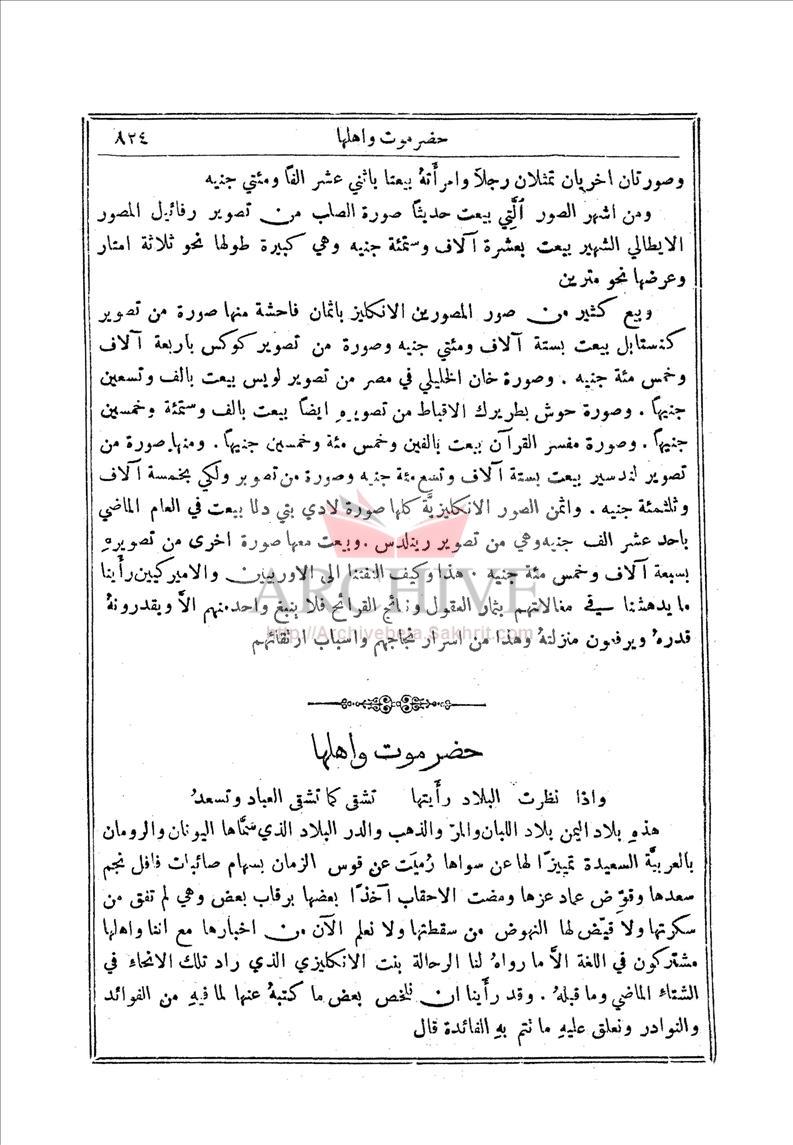 حضرموت واهلها
٨٢٤
وصورتان اخريان تمثلان رجلاً وامرأتهُ بيعتا باثني عشر الفًا ومئتي جنيه
ومن اشهر الصور الَّتي بيعت حديثًا صورة الصلب من تصوير رفائيل المصور
الايطالي الشهير بيعت بعشرة آلاف وستمئة جنيه وهي كبيرة طولها نحو ثلاثة امتار
وعرضها نحو مترين
وبيع كثير من صور المصورين الانكليز باثمان فاحشة منها صورة من تصوير
كنستابل بيعت بستة آلاف ومئتي جنيه وصورة من تصوير كوكس باربعة آلاف
وخمس مئة جنيه . وصورة خان الخليلي في مصر من تصوير لويس بيعت بالف وتسعين
جنيهًا . وصورة حوش بطريرك الاقباط من تصويرهِ ايضًا بيعت بالف وستمئة وخمسين
جنيهًا . وصورة مفسر القرآن بيعت بالفين وخمس مئة وخمسين جنيهًا . ومنها صورة من
تصوير لندسير بيعت بستة آلاف وتسع مئة جنيه وصورة من تصوير ولكي بخمسة آلاف
وثلثمئة جنيه . واثمن الصور الانكليزيَّة كلها صورة لادي بتي دلما بيعت في العام الماضي
باحد عشر الف جنيه وهي من تصوير رينلدس . وبيعت معها صورة اخرى من تصويرهِ
بسبعة آلاف وخمس مئة جنيه . هذا وكيف التفتنا الى الاوربيين والاميركيين رأَينا
ما يدهشنا في مغالاتهم بثمار العقول ونتائج القرائح فلا ينبغ واحد منهم الاَّ ويقدرونهُ
قدرهُ ويرفعون منزلتهُ وهذا من اسرار نجاحهم واسباب ارتقائهم
ARCHIVE
http://Archivebeta.Sakhrit.com
حضرموت واهلها
واذا نظرت البلاد رأَيتها تشقى كما تشقى العباد وتسعدُ
هذهِ بلاد اليمن بلاد اللبان والمرّ والذهب والدر البلاد الذي سمَّاها اليونان والرومان
بالعربيَّة السعيدة تمييزًا لها عن سواها رُميَت عن قوس الزمان بسهام صائبات فافل نجم
سعدها وقوّض عماد عزها ومضت الاحقاب آخذًا بعضها برقاب بعض وهي لم تفق من
سكرتها ولا قيّض لها النهوض من سقطتها ولا نعلم الآن من اخبارها مع اننا واهلها
مشتركون في اللغة الاَّ ما رواهُ لنا الرحالة بنت الانكليزي الذي راد تلك الانحاء في
الشتاء الماضي وما قبلهُ . وقد رأَينا ان نلخص بعض ما كتبهُ عنها لما فيهِ من الفوائد
والنوادر ونعلق عليهِ ما تتم بهِ الفائدة قال